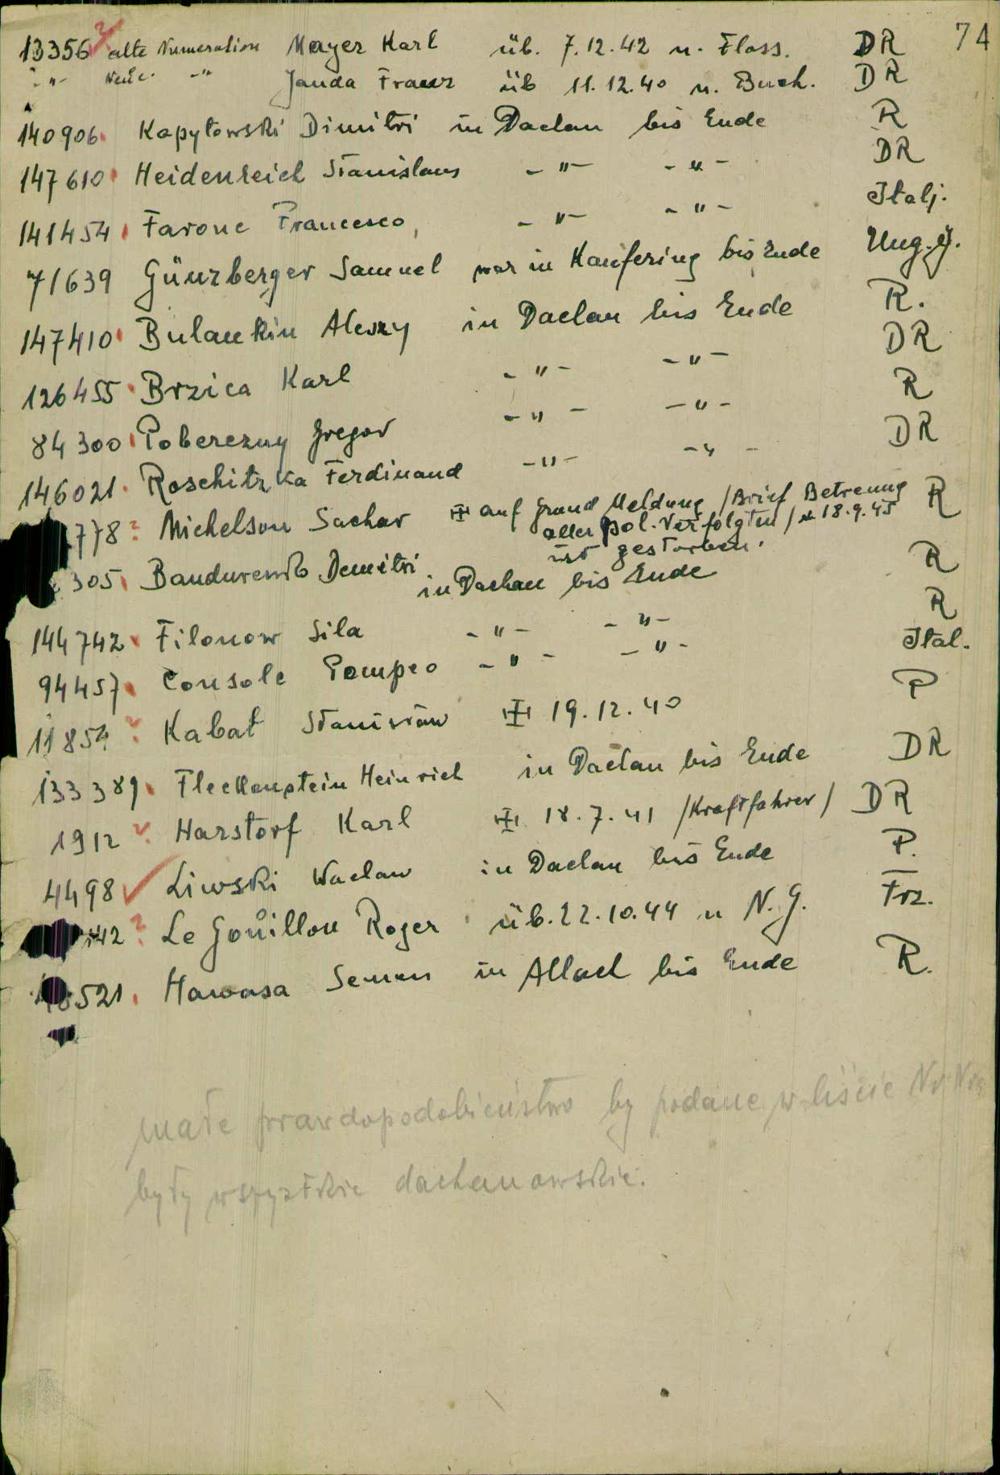 74
13356 ? alte Numeration Mayer Karl üb. 7.12.42 n. Floss. DR
- " - Neue - " - Janda Franz üb 11.12.40 n. Buch. DR
140906. Kapytowski Dimitri in Dachau bis Ende R
147610. Heidenreich Stanislaus - " - - " - DR
141454. Farone Francesco, - " - - " - Italj.
71639 Günzberger Samuel war in Kaufering bis Ende Ung.J.
147410. Bulankin Alexzy in Dachau bis Ende R.
126455. Brzica Karl - " - - " - DR
84300. Poberezny Gregor - " - - " - R
146021. Roschitzka Ferdinand - " - - " - DR
778? Michelson Sachar ✠ auf Grund Meldung /Brief Betreuung R
aller pol. Verfolgten / v. 18.9.45
ist gestorben.
305. Bandurenko Demitri in Dachau bis Ende R
144742. Filonow Sila - " - - " - R
94457. Console Pompeo - " - - " - Ital.
11854 ? Kabat Stanisław ✠ 19.12.40 P
133389. Fleckenstein Heinrich in Dachau bis Ende DR
1912 ✓ Harstorf Karl ✠ 18.7.41 /Kraftfahrer/ DR
4498 ✓ Liwski Wacław in Dachau bis Ende P.
42 ? Le Goüillou Roger üb. 22.10.44 n N.G. Frz.
8521. Hawasa Semen in Allach bis Ende R.
małe prawdopodobieństwo by podane w liście Nr Nr
były wszystkie dachauowskie.